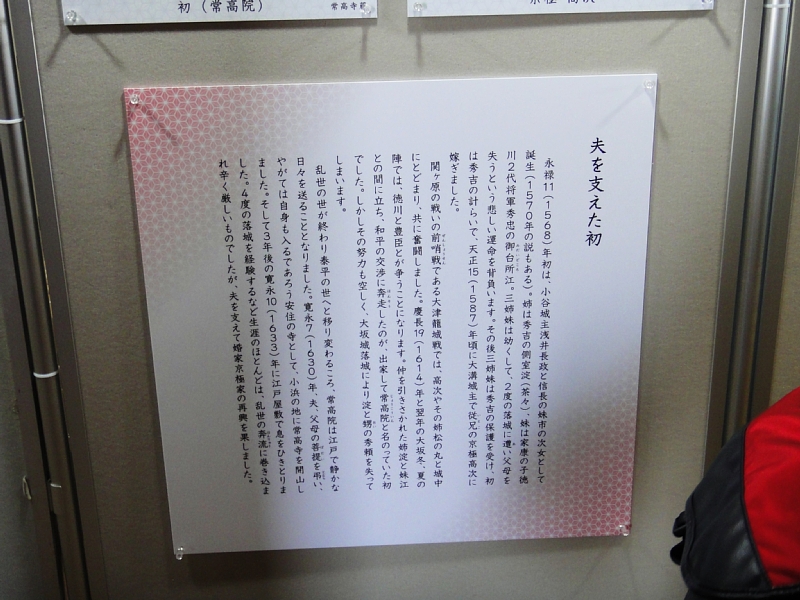 初（常高院）
常高寺蔵
夫を支えた初
永禄11（1568）年初は、小谷城主浅井長政と信長の妹市の次女として
誕生（1570年の説もある）。姉は秀吉の側室淀（茶々）、妹は家康の子徳
川２代将軍秀忠の御台所江。三姉妹は幼くして、２度の落城に遭い父母を
失うという悲しい運命を背負います。その後三姉妹は秀吉の保護を受け、初
は秀吉の計らいで、天正15（1587）年頃に大溝城主で従兄の京極高次に
嫁ぎました。
関ヶ原の戦いの前哨戦である大津籠城戦では、高次やその姉松の丸と城中
にとどまり、共に奮闘しました。慶長19（1614）年と翌年の大坂冬、夏の
陣では、徳川と豊臣とが争うことになります。仲を引きさかれた姉淀と妹江
との間に立ち、和平の交渉に奔走したのが、出家して常高院と名のっていた初
でした。しかしその努力も空しく、大坂城落城により淀と甥の秀頼を失って
しまいます。
乱世の世が終わり泰平の世へと移り変わるころ、常高院は江戸で静かな
日々を送ることとなりました。寛永７（1630）年、夫、父母の菩提を弔い、
やがては自身も入るであろう安住の寺として、小浜の地に常高寺を開山し
ました。そして３年後の寛永10（1633）年に江戸屋敷で息をひきとりま
した。４度の落城を経験するなど生涯のほとんどは、乱世の奔流に巻き込ま
れ辛く厳しいものでしたが、夫を支えて婚家京極家の再興を果しました。